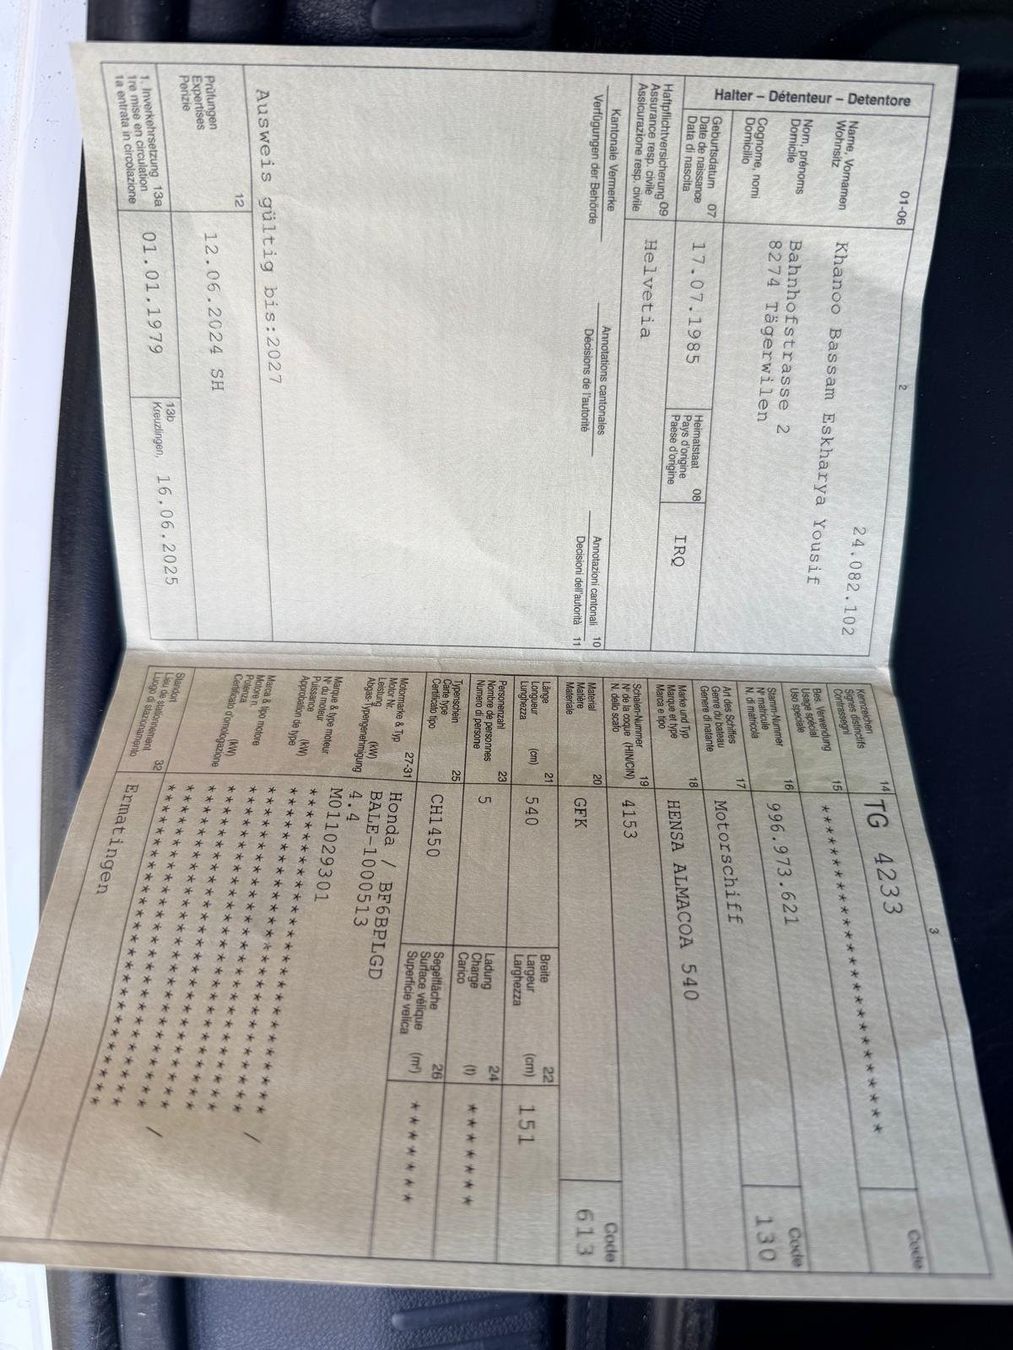 2
Halter – Détenteur – Detentore
01-06
24.082.102
Name, Vornamen
Wohnsitz
Nom, prénoms
Domicile
Cognome, nomi
Domicilio
Khanoo Bassam Eskharya Yousif
Bahnhofstrasse 2
8274 Tägerwilen
Geburtsdatum 07
Date de naissance
Data di nascita
17.07.1985
Heimatstaat 08
Pays d'origine
Paese d'origine
IRQ
Haftpflichtversicherung 09
Assurance resp. civile
Assicurazione resp. civile
Helvetia
Kantonale Vermerke
Verfügungen der Behörde
Annotations cantonales
Décisions de l'autorité
Annotazioni cantonali 10
Decisioni dell'autorità 11
Ausweis gültig bis:2027
Prüfungen 12
Expertises
Perizie
12.06.2024 SH
1. Inverkehrsetzung 13a
1re mise en circulation
1a entrata in circolazione
01.01.1979
13b
Kreuzlingen, 16.06.2025
3
Kennzeichen 14
Signes distinctifs
Contrassegni
TG 4233
Code
Bes. Verwendung 15
Usage spécial
Uso speciale
******************************
Stamm-Nummer 16
N° matricule
N. di matricola
996.973.621
Code
130
Art des Schiffes 17
Genre du bateau
Genere di natante
Motorschiff
Marke und Typ 18
Marque et type
Marca e tipo
HENSA ALMACOA 540
Schalen-Nummer 19
N° de la coque (HIN/CIN)
N. dello scafo
4153
Material 20
Matière
Materiale
GFK
Code
613
Länge 21
Longueur (cm)
Lunghezza
540
Breite 22
Largeur (cm)
Larghezza
151
Personenzahl 23
Nombre de personnes
Numero di persone
5
Ladung 24
Charge (t)
Carico
*******
Typenschein 25
Carte type
Certificato tipo
CH1450
Segelfläche 26
Surface vélique (m²)
Superficie velica
*******
Motormarke & Typ 27-31
Motor Nr.
Leistung (kW)
Abgas-Typengenehmigung
Honda / BF6BPLGD
BALE-1000513
4.4
M011029301
Marque & type moteur
N° du moteur
Puissance (kW)
Approbation de type
Marca & tipo motore
Motore n.
Potenza (kW)
Certificato d'omologazione
Standort 32
Lieu de stationnement
Luogo di stazionamento
Ermatingen